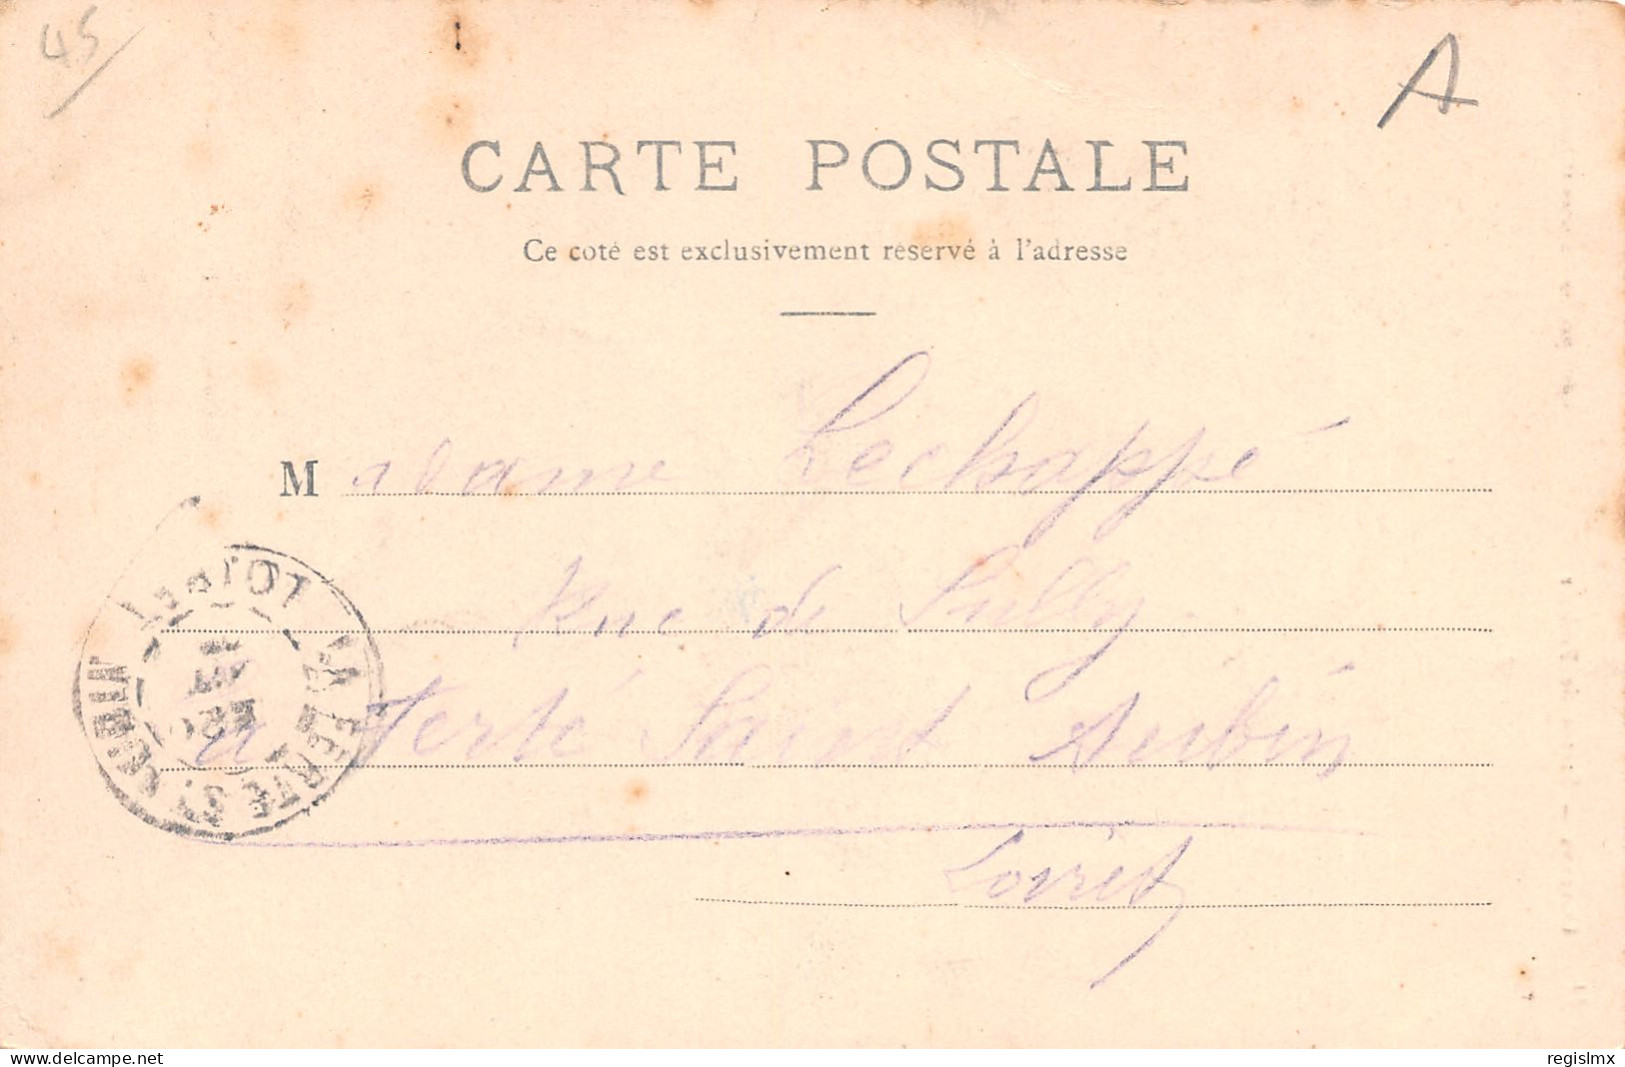 45
A
CARTE POSTALE
Ce coté est exclusivement réservé à l'adresse
Madame Lechappé
Rue de Sully
a Ferté Saint Aubin
Loiret
LA FERTE ST AUBIN
LOIRET
delcampe.net
regislmx